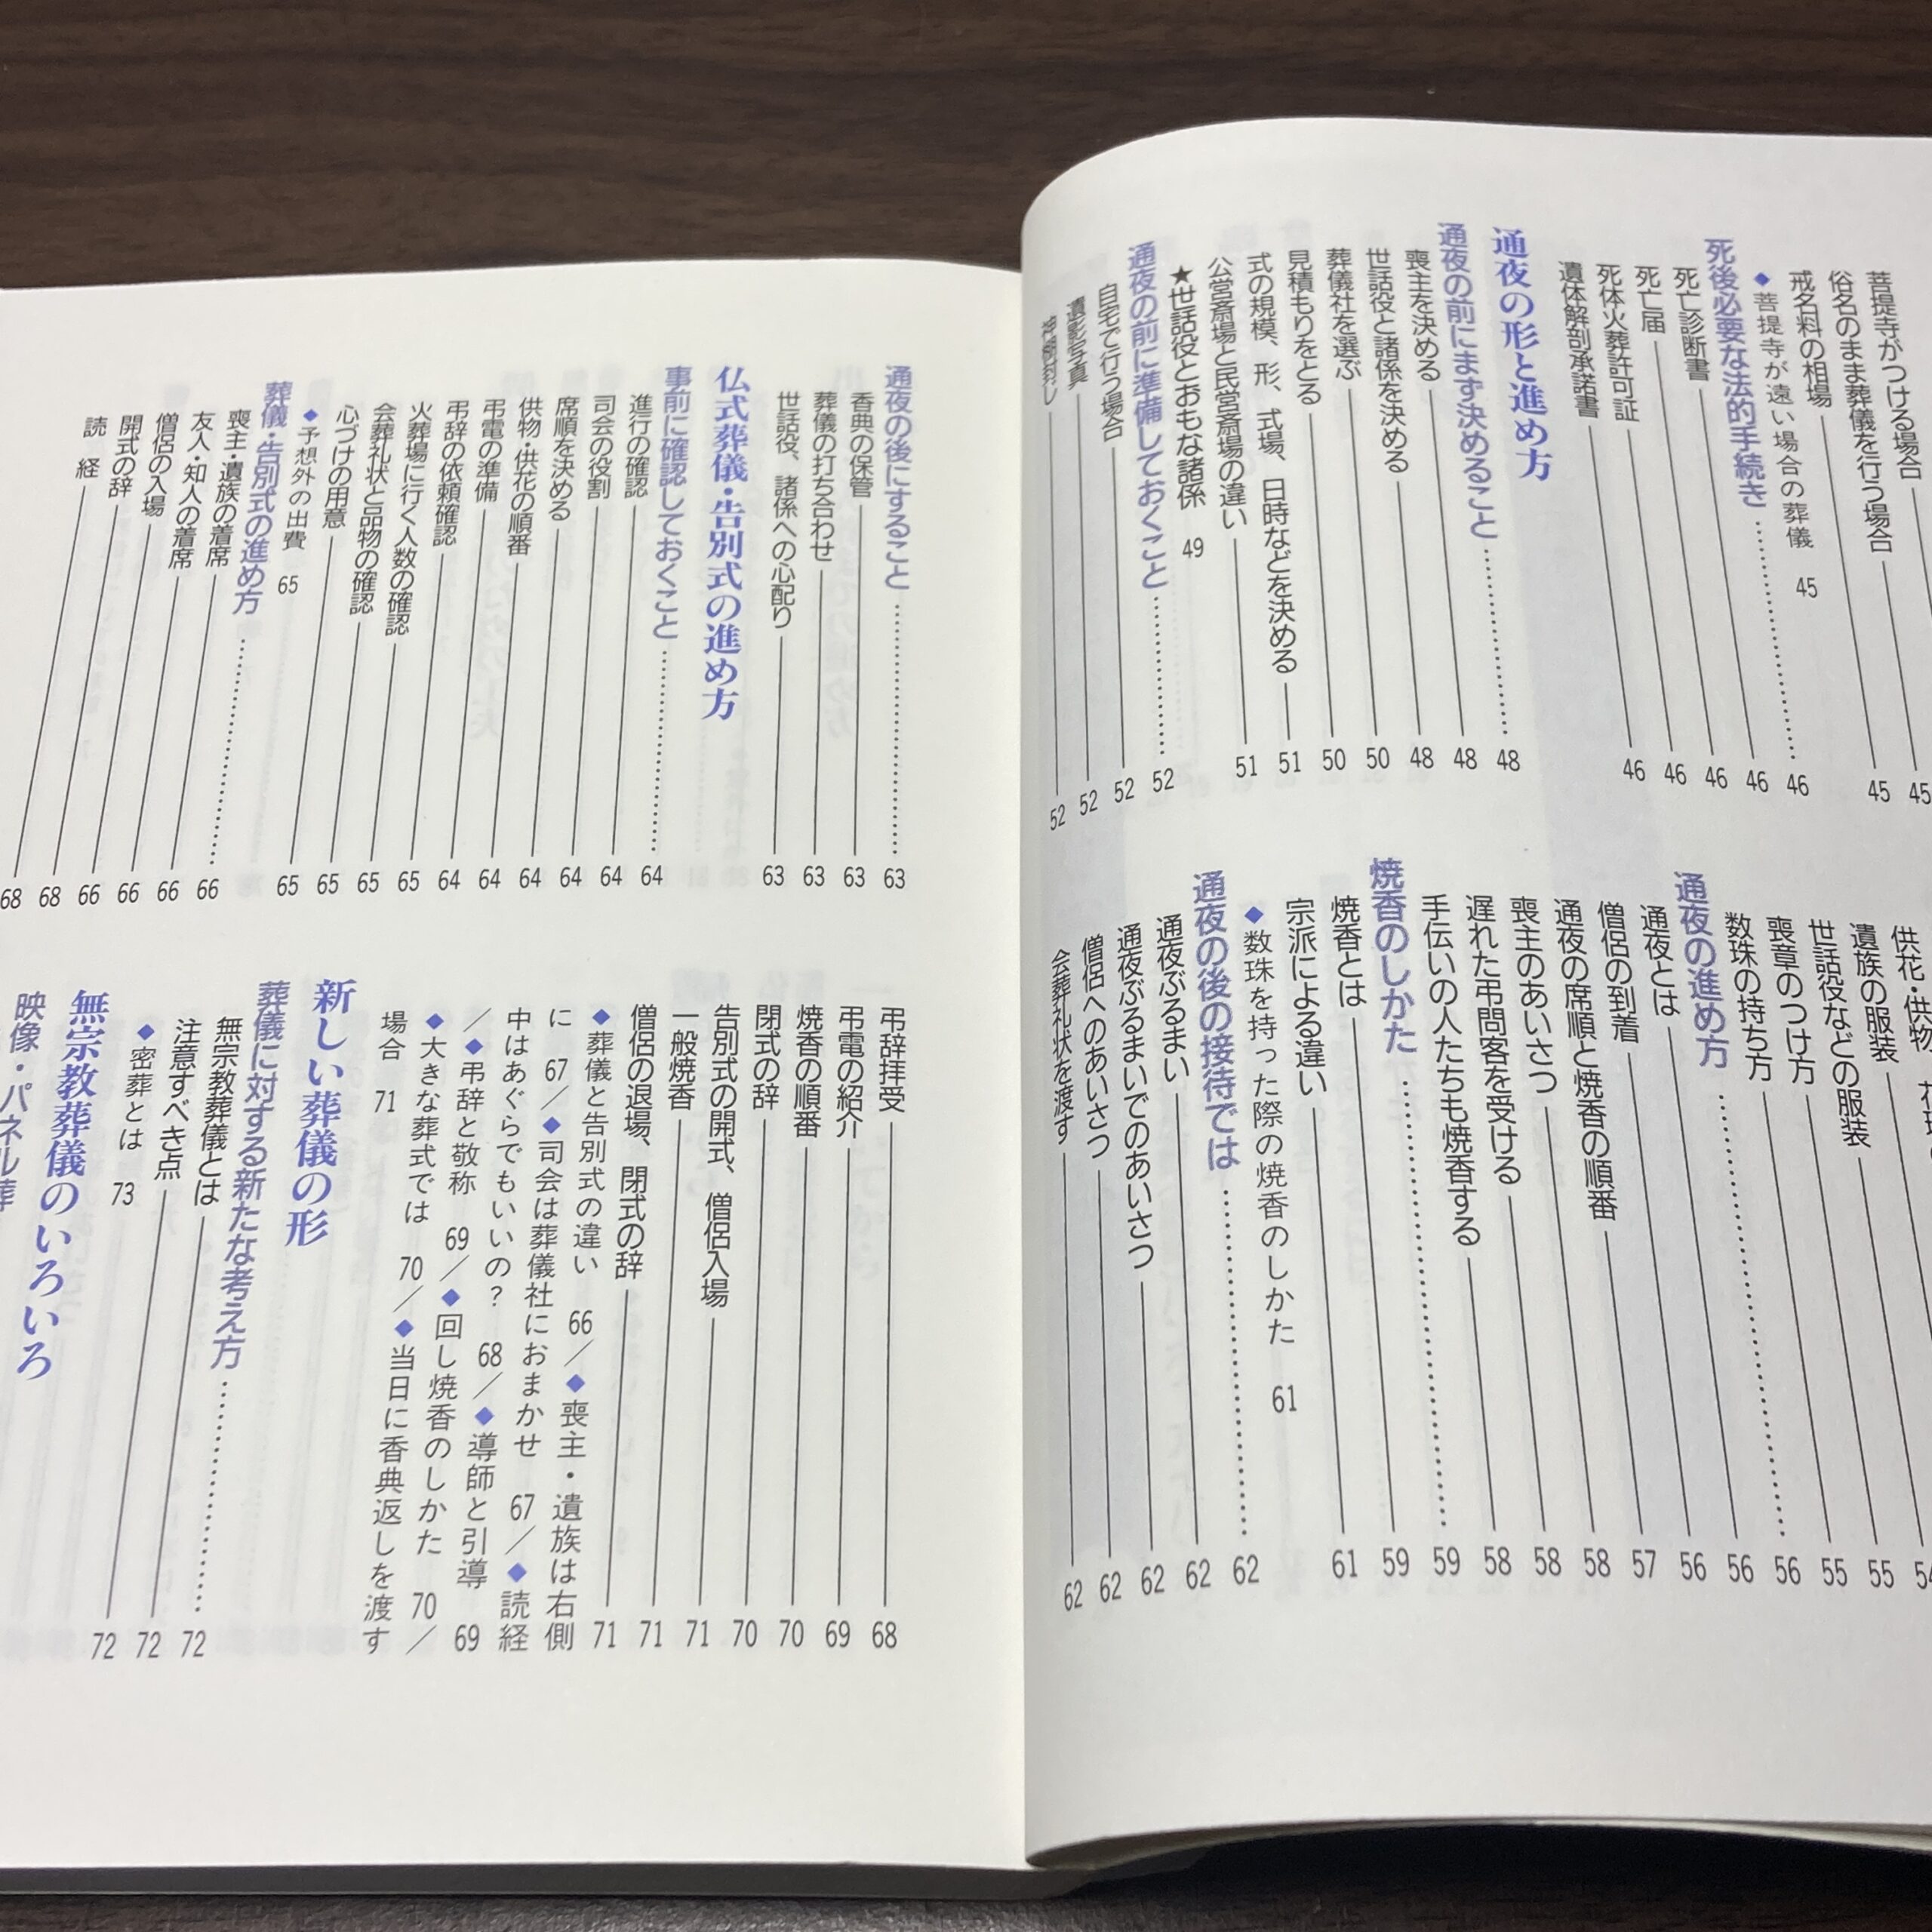 菩提寺がつける場合 45
俗名のまま葬儀を行う場合 45
戒名料の相場
◆菩提寺が遠い場合の葬儀 45
死後必要な法的手続き 46
死亡診断書 46
死亡届 46
死体火葬許可証 46
遺体解剖承諾書 46
通夜の形と進め方
通夜の前にまず決めること 48
喪主を決める 48
世話役と諸係を決める 48
葬儀社を選ぶ 50
見積もりをとる 50
式の規模、形、式場、日時などを決める 51
公営斎場と民営斎場の違い 51
★世話役とおもな諸係 49
通夜の前に準備しておくこと 52
自宅で行う場合 52
遺影写真 52
神棚封じ 52
供花・供物
遺族の服装 54
世話役などの服装 55
喪章のつけ方 55
数珠の持ち方 56
通夜の進め方 56
通夜とは 56
僧侶の到着 57
通夜の席順と焼香の順番 58
喪主のあいさつ 58
遅れた弔問客を受ける 58
手伝いの人たちも焼香する 59
焼香のしかた 59
焼香とは 61
宗派による違い
◆数珠を持った際の焼香のしかた 61
通夜の後の接待では 62
通夜ぶるまい 62
通夜ぶるまいでのあいさつ 62
僧侶へのあいさつ 62
会葬礼状を渡す 62
通夜の後にすること 63
香典の保管 63
葬儀の打ち合わせ 63
世話役、諸係への心配り 63
仏式葬儀・告別式の進め方
事前に確認しておくこと 64
進行の確認 64
司会の役割 64
席順を決める 64
供物・供花の順番 64
弔電の準備 64
弔辞の依頼確認 65
火葬場に行く人数の確認 65
会葬礼状と品物の確認 65
心づけの用意 65
◆予想外の出費 65
葬儀・告別式の進め方 66
喪主・遺族の着席 66
友人・知人の着席 66
僧侶の入場 66
開式の辞 68
読経 68
弔辞拝受 68
弔電の紹介 69
焼香の順番 70
閉式の辞 70
告別式の開式、僧侶入場 71
一般焼香 71
僧侶の退場、閉式の辞 71
◆葬儀と告別式の違い 66／◆喪主・遺族は右側
に 67／◆司会は葬儀社におまかせ 67／◆読経
中はあぐらでもいいの？ 68／◆導師と引導 69
／◆弔辞と敬称 69／◆回し焼香のしかた 70／
◆大きな葬式では 70／◆当日に香典返しを渡す
場合 71
新しい葬儀の形
葬儀に対する新たな考え方 72
無宗教葬儀とは 72
注意すべき点 72
◆密葬とは 73
無宗教葬儀のいろいろ
映像・パネル葬